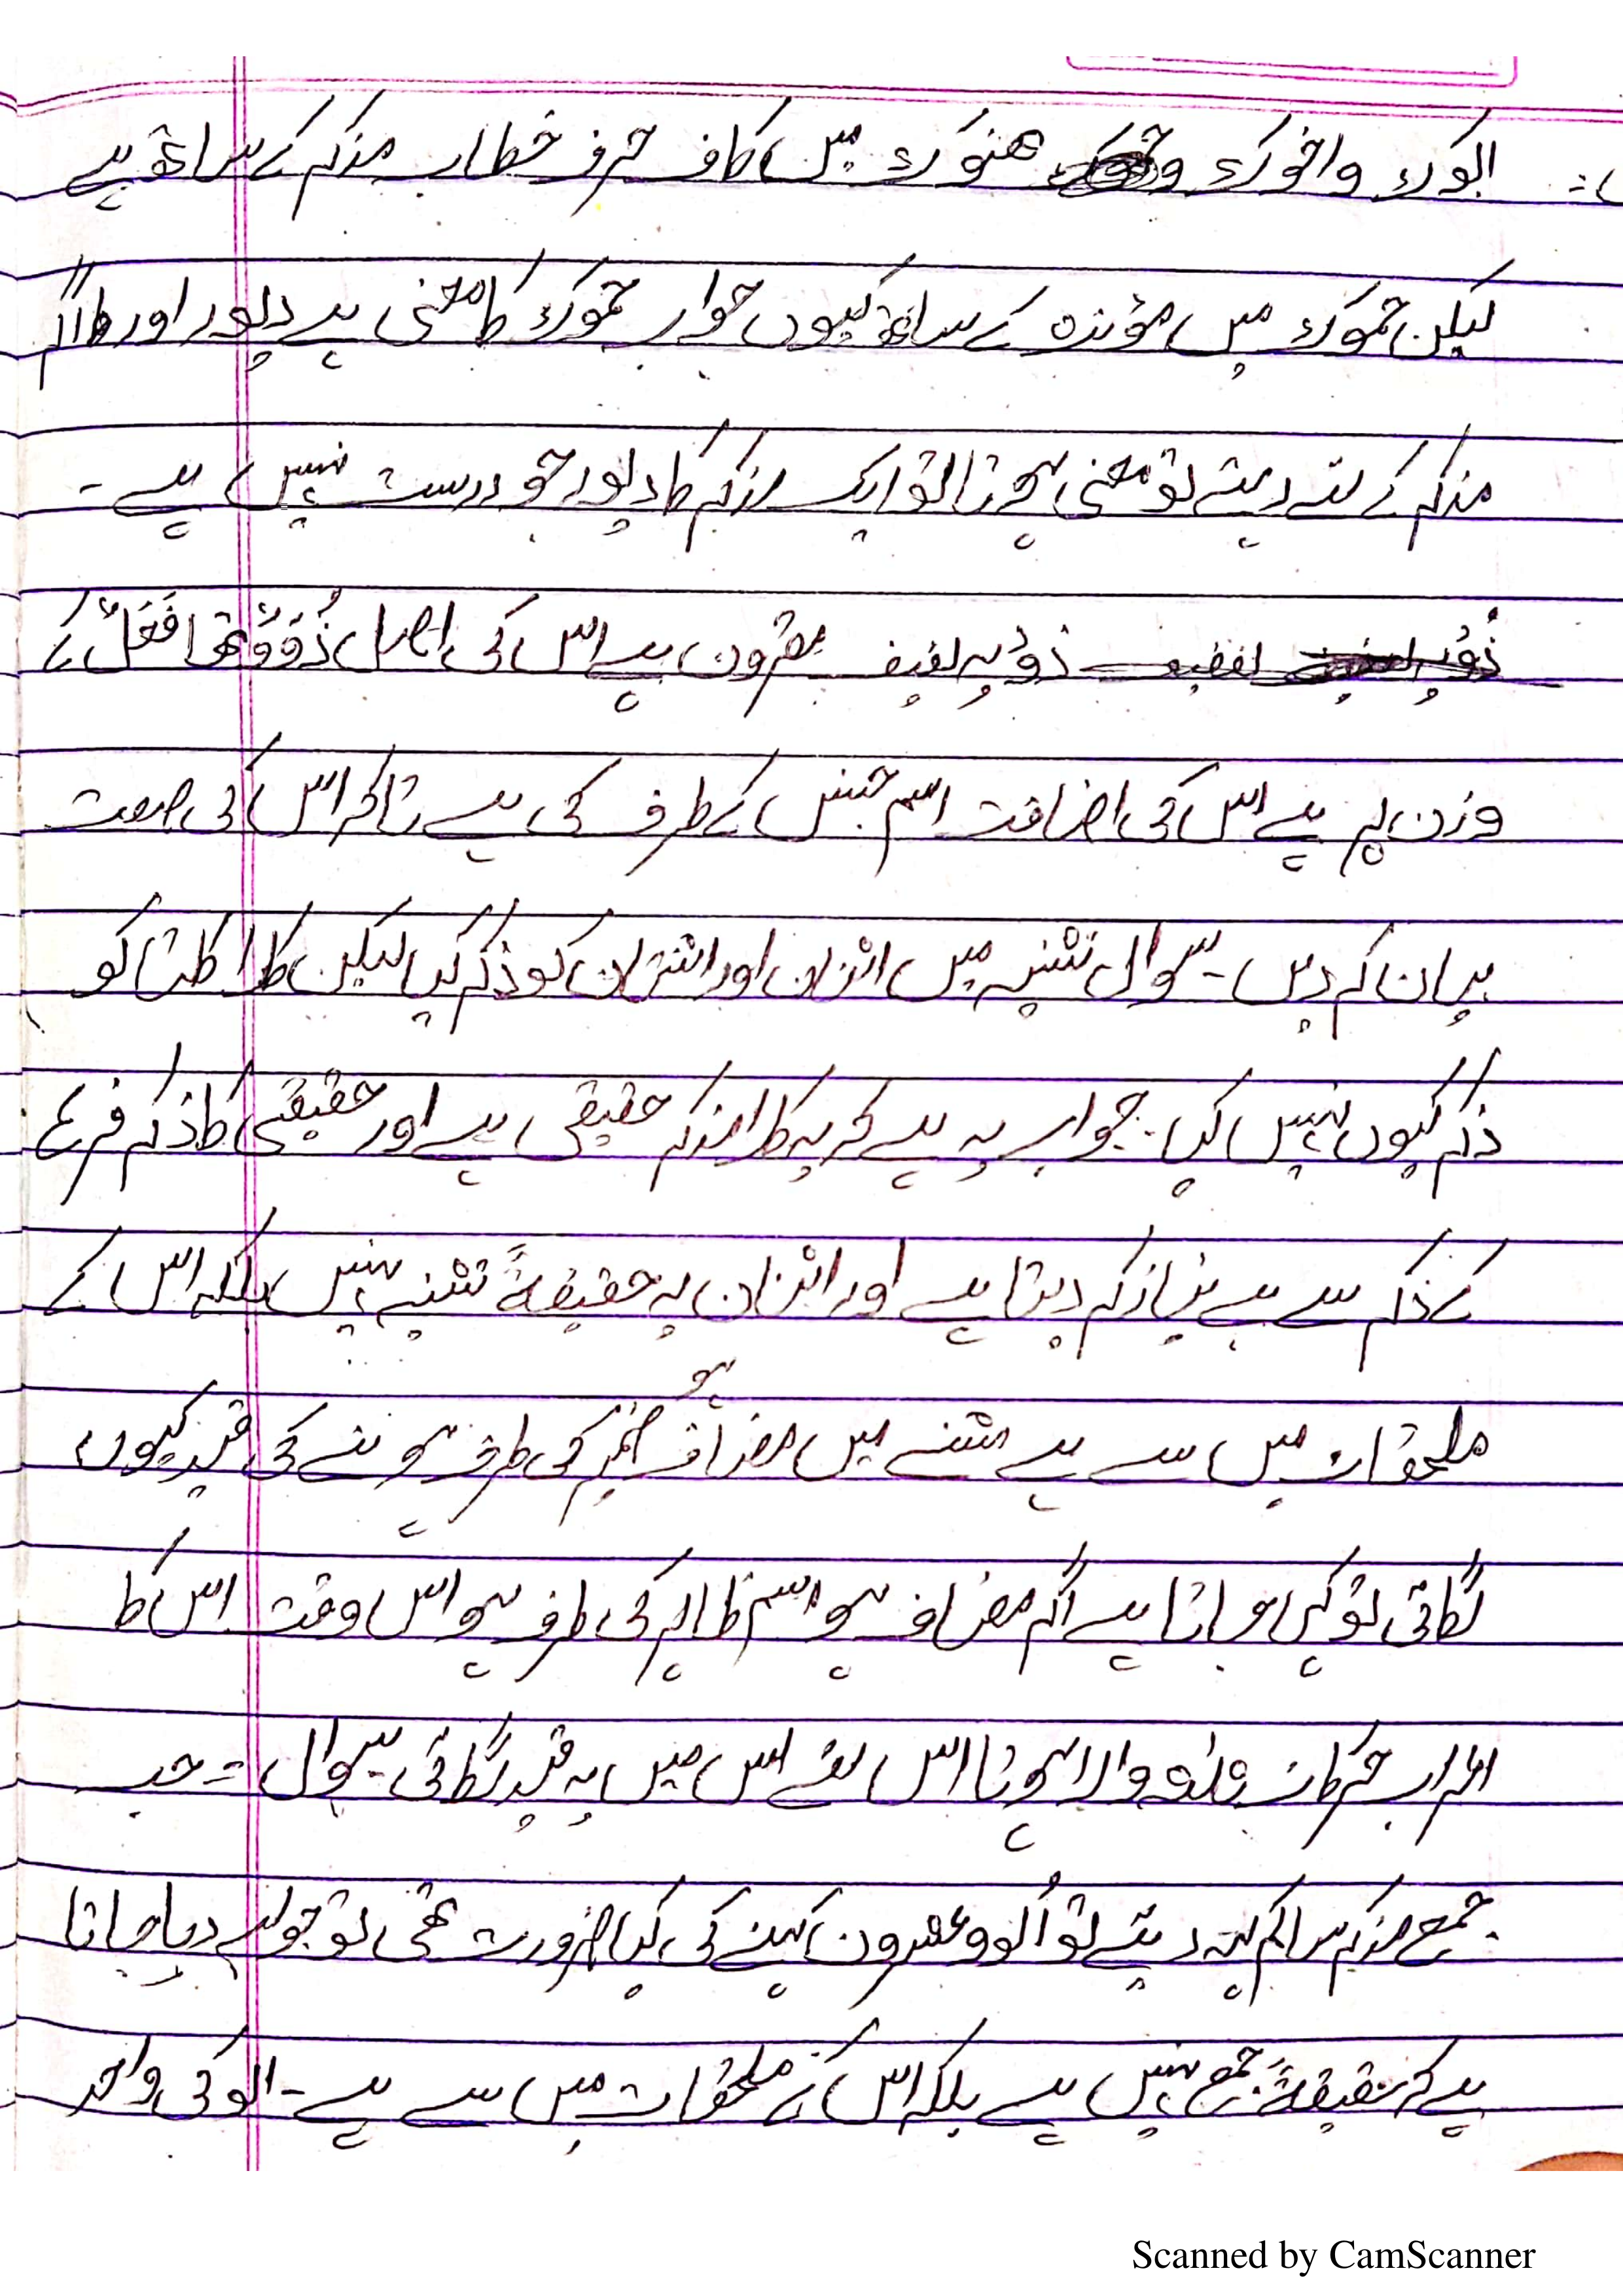 ابوک واخوک و ھنوک میں کاف حرف خطاب مذکر کے ساتھ ہے
لیکن حموک میں مؤنث کے ساتھ کیوں جواب حموک کا معنی ہے دیور اور اگر
مذکر کے لئے دیتے تو معنی ہوتا تو ایک مذکر کا دیور جو درست نہیں ہے ۔
ذُوْ یہ لفیف مقرون ہے اس کی اصل ذُوَوٌ تھا فَعَلٌ کے
وزن پر ہے اس کی اضافت اسم جنس کے طرف کی ہے تاکہ اس کی صفت
بیان کر دیں ۔ سوال تثنیہ میں اثنان اور اثنتان کو ذکر کیا لیکن کلا کلتا کو
ذکر کیوں نہیں کیا ۔ جواب یہ ہے کہ یہ کلا مذکر حقیقی ہے اور حقیقی کا ذکر فرع
کے ذکر سے بے نیاز کر دیتا ہے اور اثنان یہ حقیقۃً تثنیہ نہیں بلکہ اس کے
ہو
ملحقات میں سے ہے مثنے میں مضاف ضمیر کی طرف ہونے کی قید کیوں
لگائی تو کہا جاتا ہے اگر مضاف ہو اسم ظاہر کی طرف ہو اس وقت اس کا
اعراب حرکات والا ہوتا اس لئے اس میں یہ قید لگائی ۔ سوال = جب
جمع مذکر سالم کہہ دیتے تو اُلو وعشرون کہنے کی کیا ضرورت تھی تو جواب دیا جاتا
ہے کہ حقیقۃً جمع نہیں ہے بلکہ اس کے ملحقات میں سے ہے ۔ الو کی واحد
Scanned by CamScanner